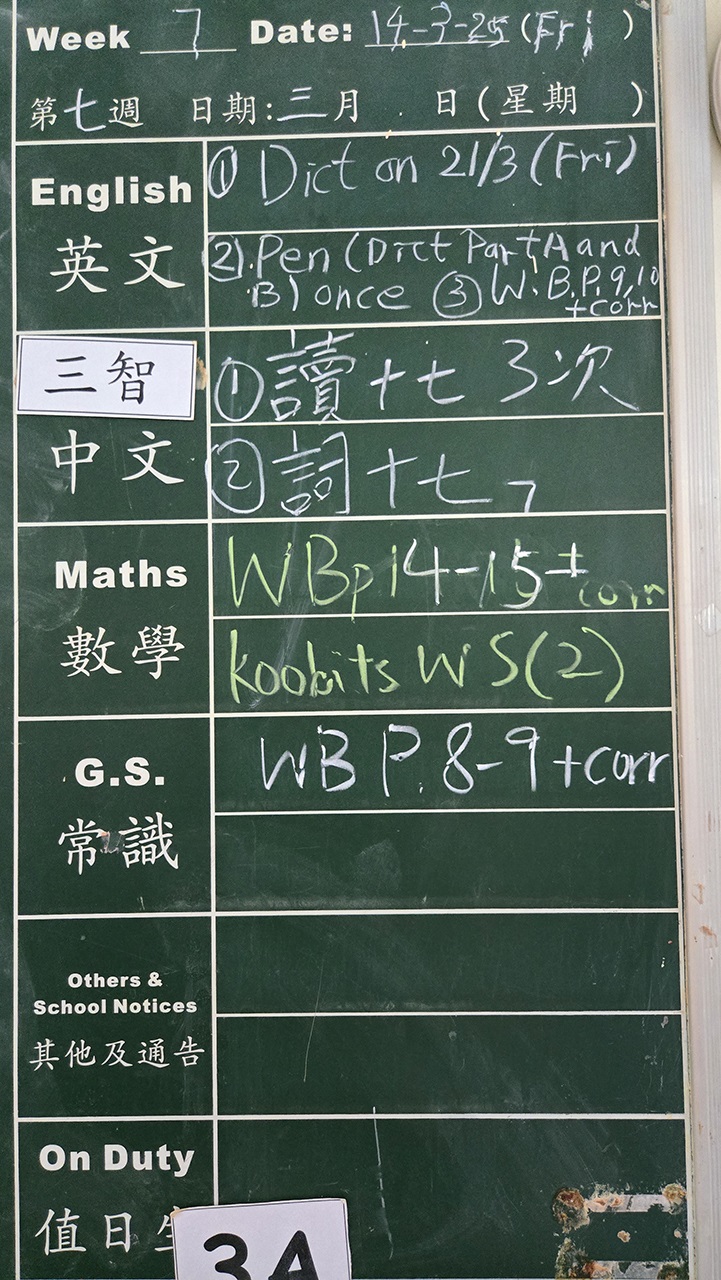 Week 7 Date: 14-3-25 (Fri)
第七週 日期:三月 日(星期 )
English
英文
① Dict on 21/3 (Fri)
②.Pen (Dict Part A and
B) once ③ W.B.P.9,10
+corr
三智
中文
①讀十七 3次
②詞十七
Maths
數學
WBp14-15+
corr
koobits WS(2)
G.S.
常識
WB P.8-9+corr
Others &
School Notices
其他及通告
On Duty
值日生
3A